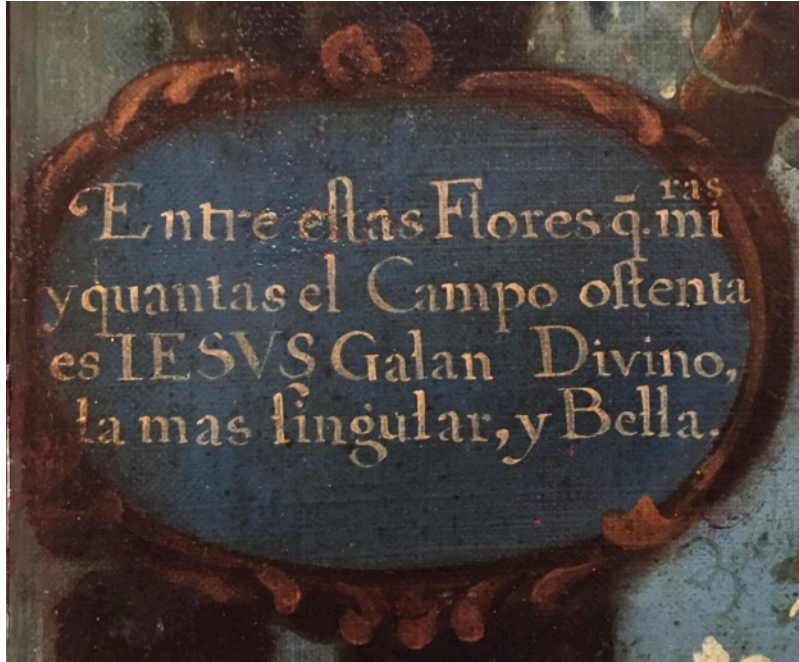 Entre eſtas Flores q̄. miras
y quantas el Campo oſtenta
es IESVS Galan Divino,
la mas ſingular, y Bella.